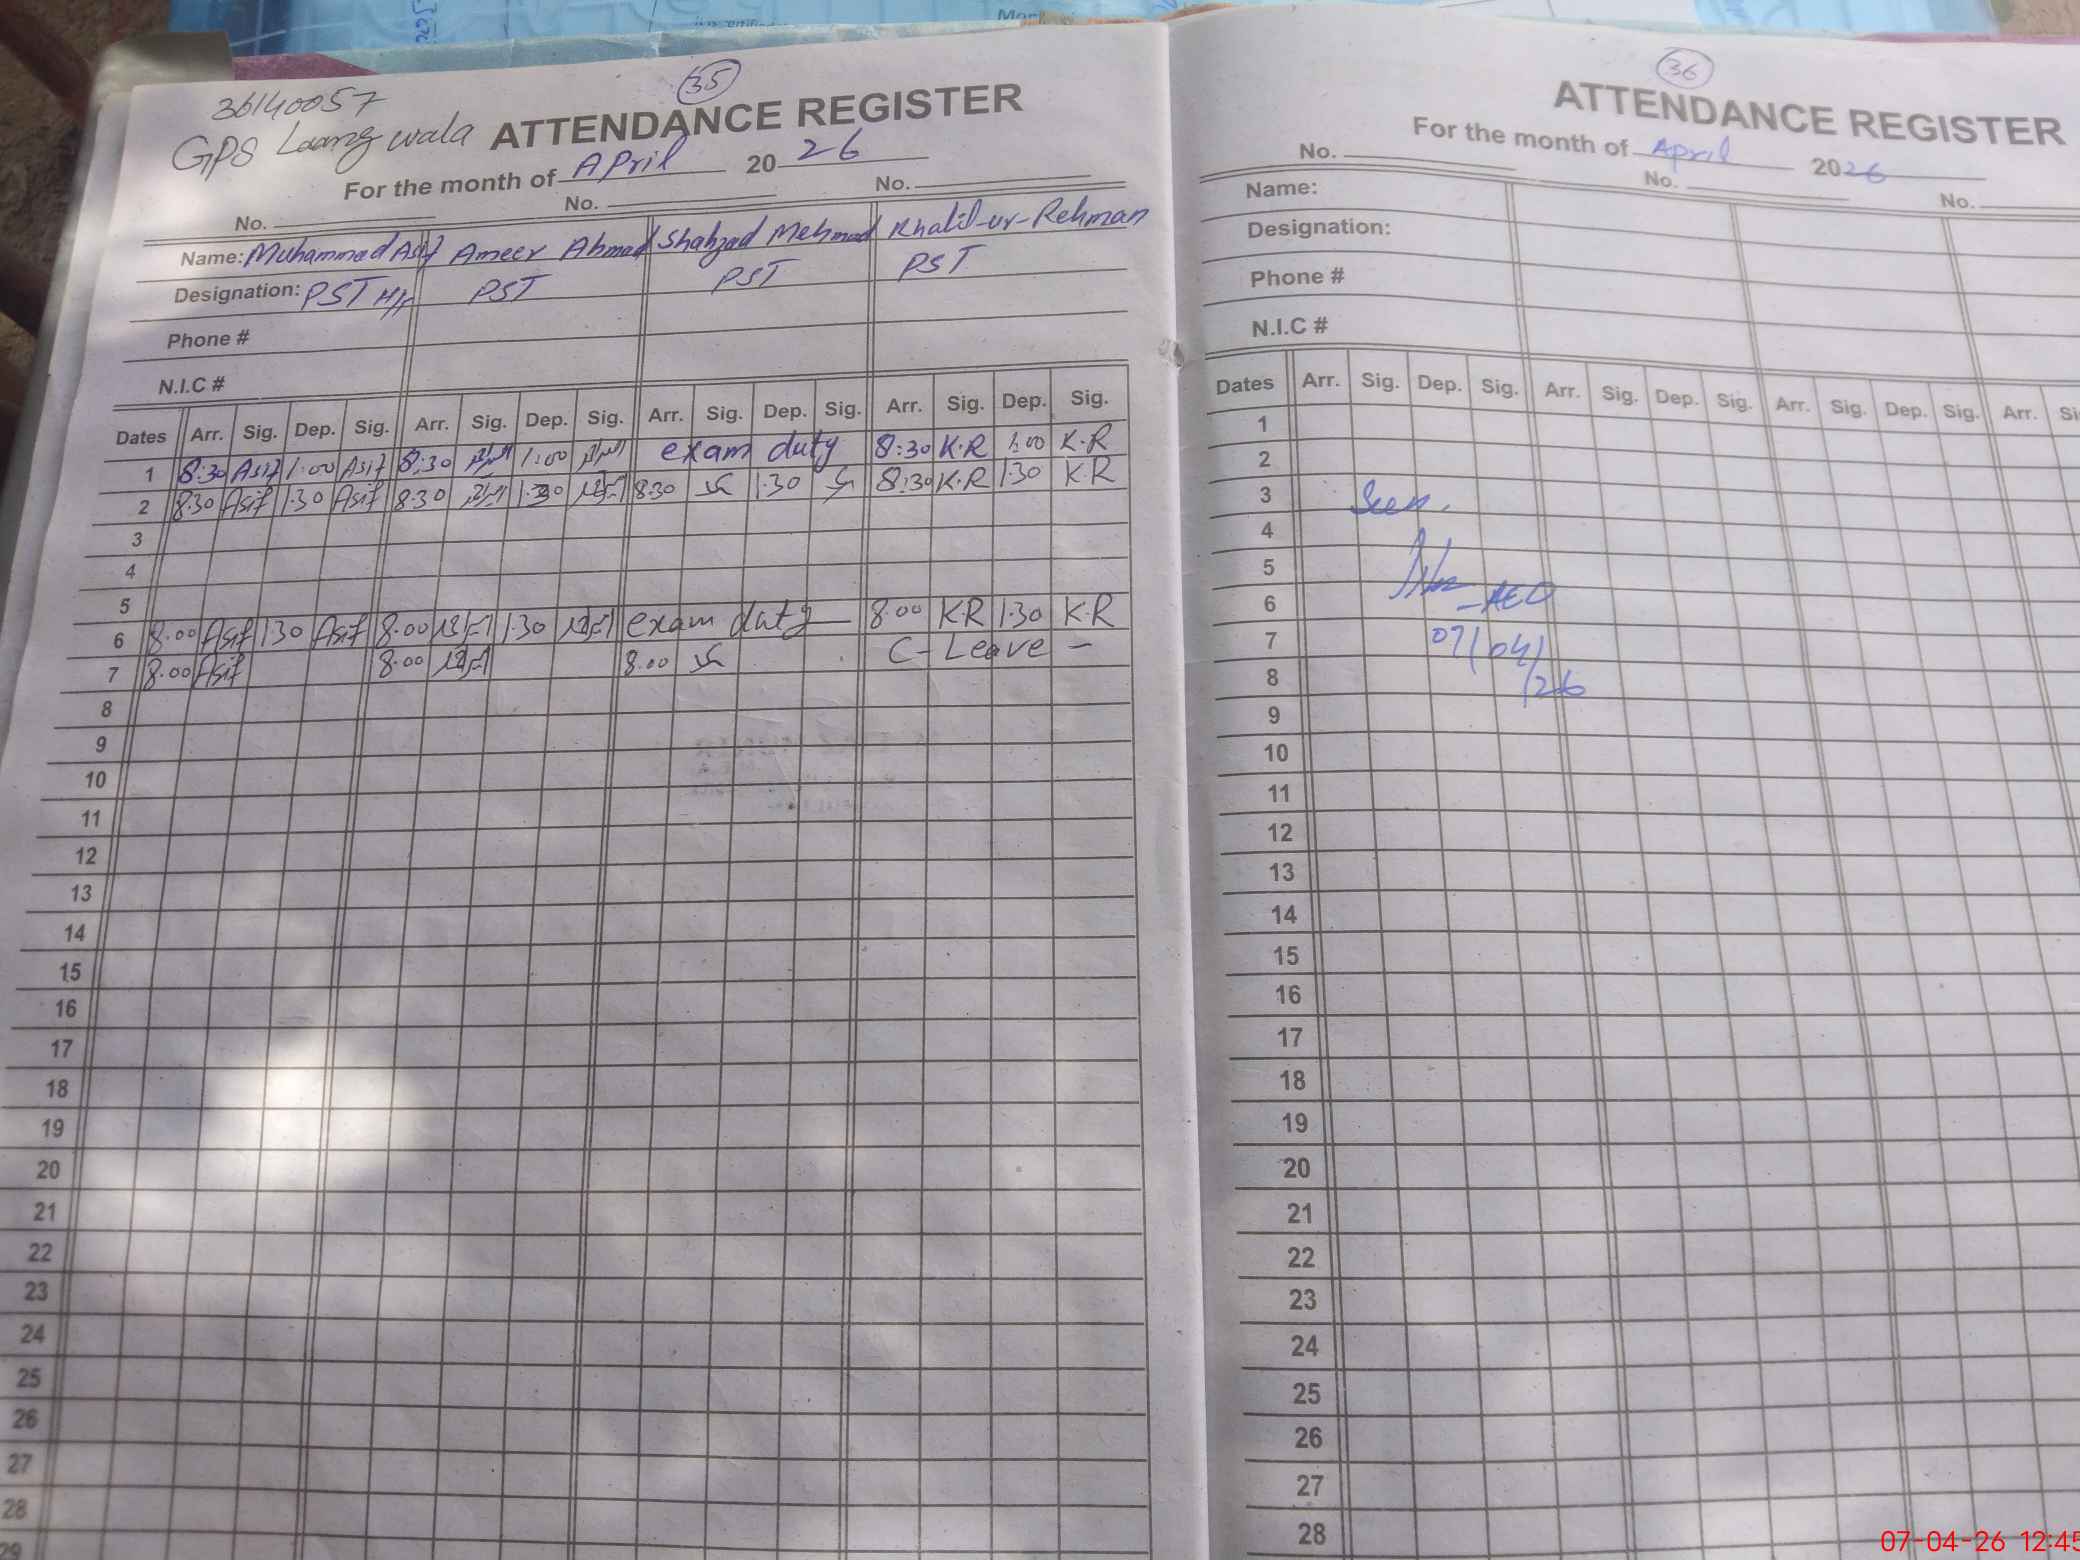 35
36140057
GPS Laang wala ATTENDANCE REGISTER
For the month of April 2026
No. No. No.
Name: Muhammad Asif Ameer Ahmad Shahzad Mehmood Khalil-ur-Rehman
Designation: PST H/r PST PST PST
Phone #
N.I.C #
Dates Arr. Sig. Dep. Sig. Arr. Sig. Dep. Sig. Arr. Sig. Dep. Sig. Arr. Sig. Dep. Sig.
1 8:30 Asif 1:00 Asif 8:30 1:00 exam duty 8:30 K.R 1:00 K.R
2 8:30 Asif 1:30 Asif 8:30 1:30 8:30 1:30 8:30 K.R 1:30 K.R
3
4
5
6 8:00 Asif 1:30 Asif 8:00 1:30 exam duty 8:00 K.R 1:30 K.R
7 8:00 Asif 8:00 8:00 C-Leave -
8
9
10
11
12
13
14
15
16
17
18
19
20
21
22
23
24
25
26
27
28
29
36
ATTENDANCE REGISTER
For the month of April 2026
No. No. No.
Name:
Designation:
Phone #
N.I.C #
Dates Arr. Sig. Dep. Sig. Arr. Sig. Dep. Sig. Arr. Sig. Dep. Sig. Arr.
1
2
3 Seen.
4
5
6 AEO
7 07/04/
8 /26
9
10
11
12
13
14
15
16
17
18
19
20
21
22
23
24
25
26
27
28
07-04-26 12:45